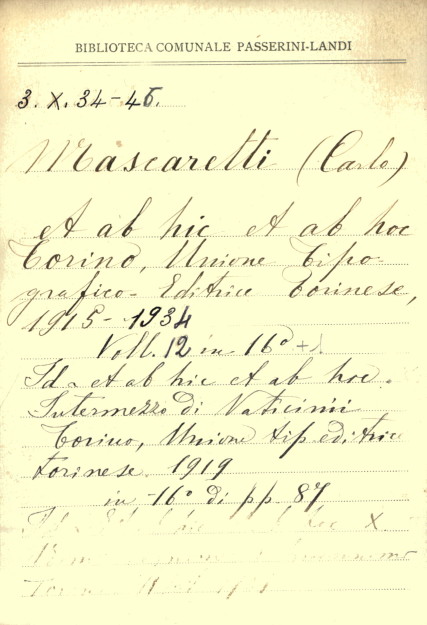 BIBLIOTECA COMUNALE PASSERINI-LANDI
3. X. 34-45.
Mascaretti (Carlo)
et ab hic et ab hoc
Torino, Unione Tipo-
grafico-Editrice Torinese,
1915-1934
Voll. 12 in 16º
Id - et ab hic et ab hoc.
Intermezzo di Vaticinii
Torino, Unione tip. editrice
torinese. 1919
in -16º di pp. 87
Id X